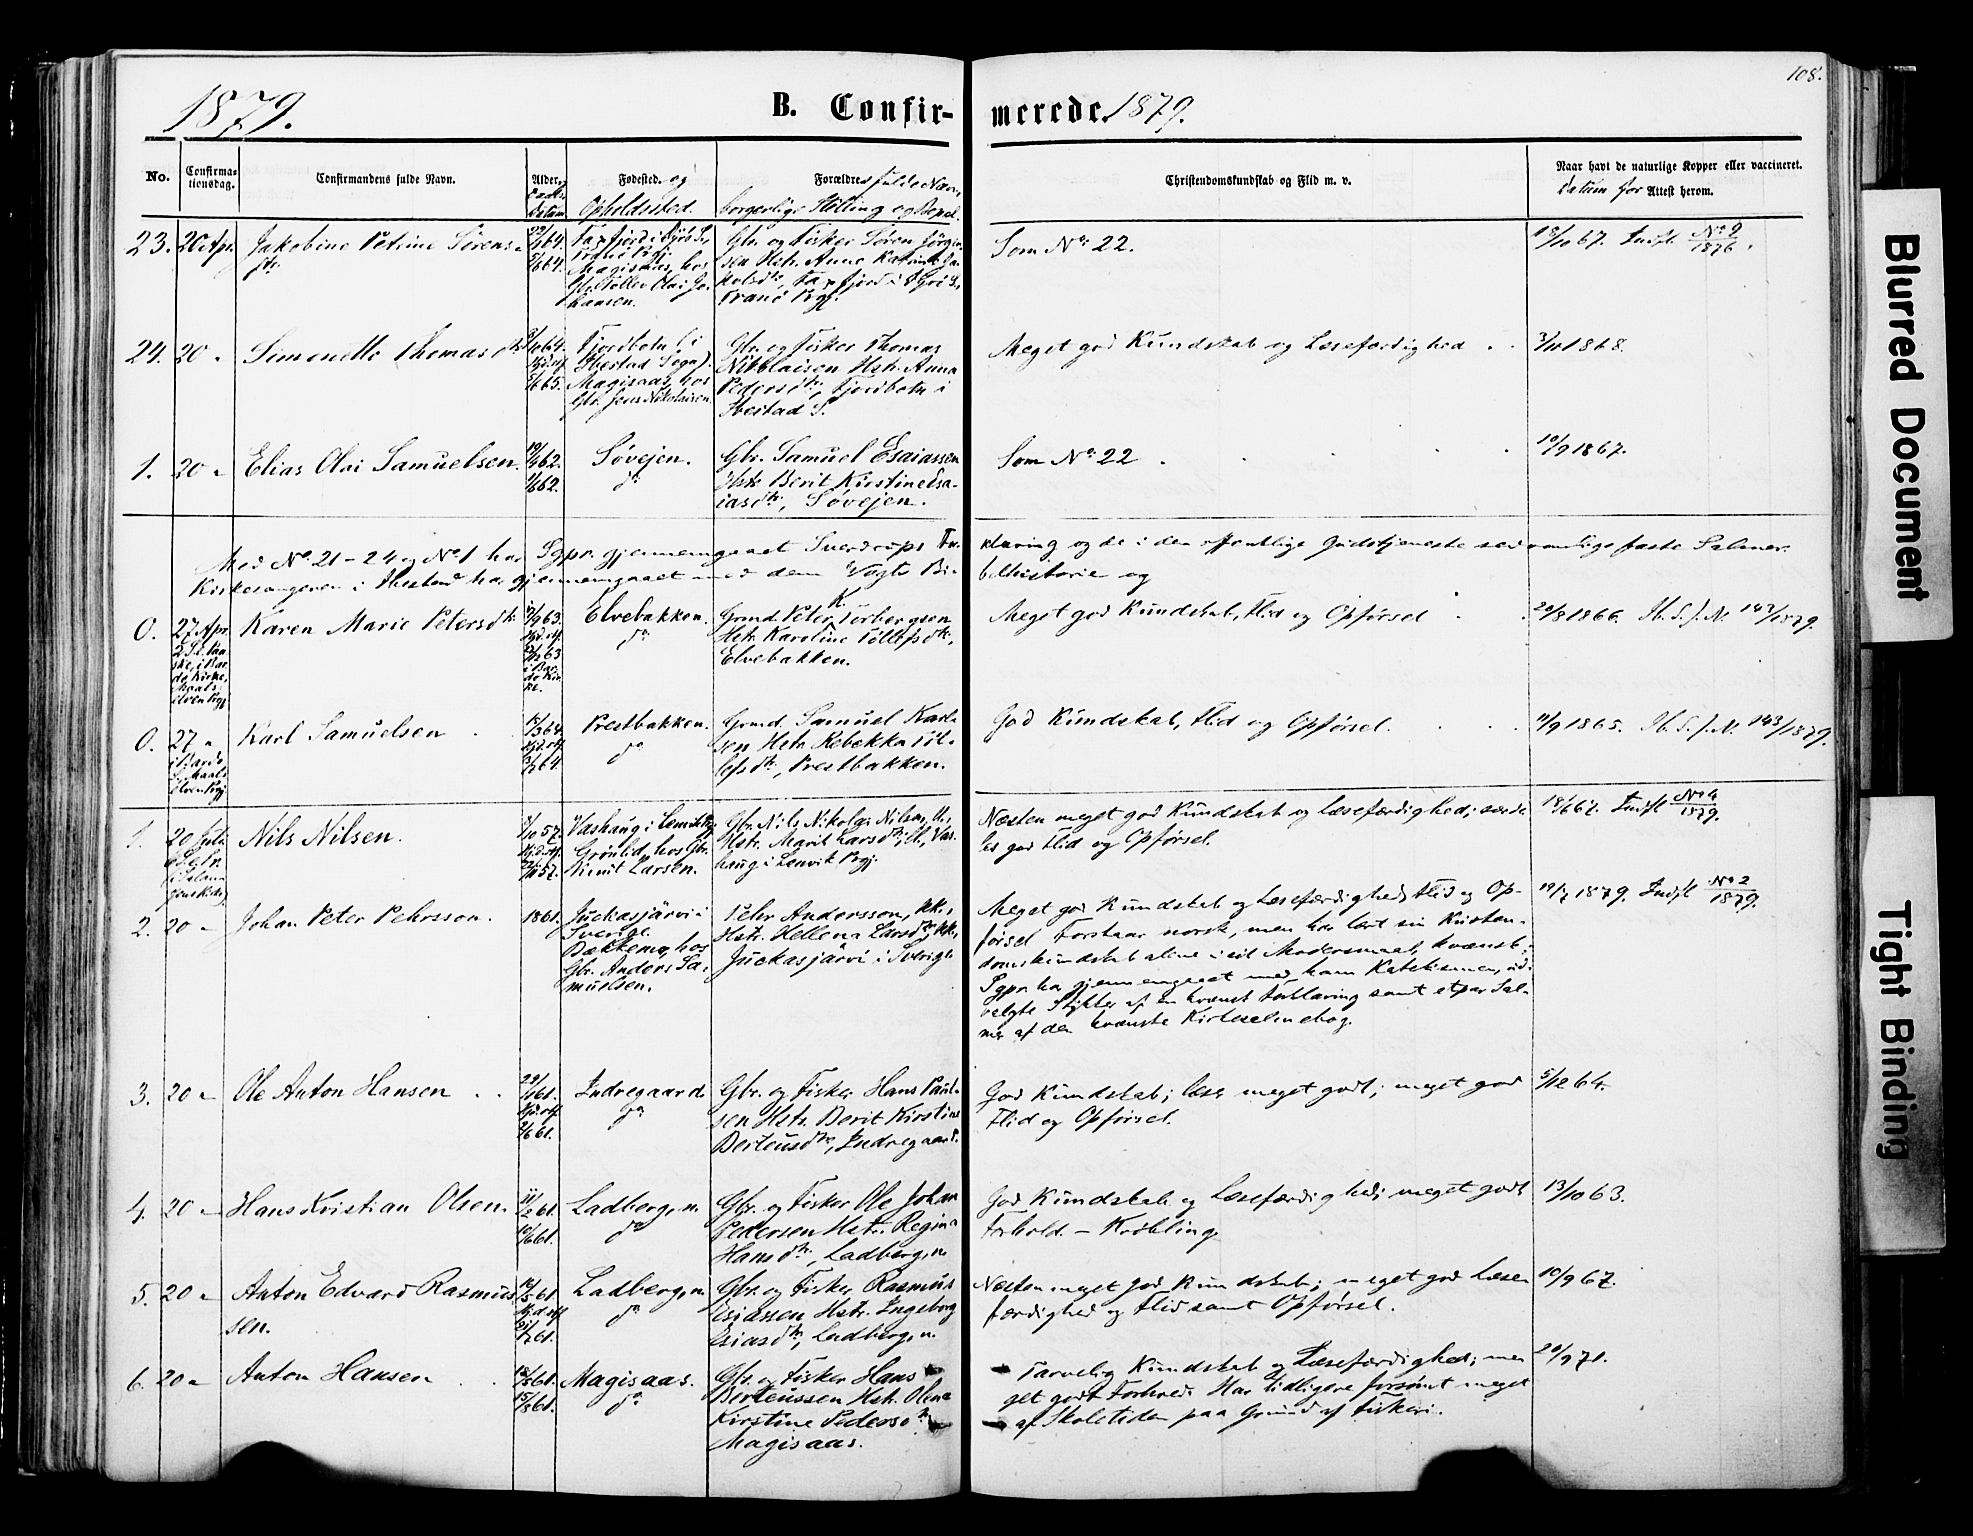 108.
1879. B. Confir- merede. 1879.
No. Confirma- tionsdag. Confirmandens fulde Navn. Alder, Fødested. og Opholdssted. Forældres fulde Navn, borgerlige Stilling og Bopæl. Christendomskundskab og Flid m. v. Naar havt de naturlige Kopper eller vaccineret. Datum for Attest herom.
23. 20 Apr. Jakobine Petrine Sørens-
dtr.
Magisaas, hos
Gbr. og Fisker Søren Jørgen-
sen Hstr. Anne
Som No. 22.
18/11 67. Indfl. No 9/1876.
24. 20 " Simonette Thomasdtr.
Fjordbotn i
Ibestad Sogn).
Magisaas, hos
Gbr. Jens Nikolaisen.
Gbr. og Fisker Thomas
Nikolaisen Hstr. Anna
Pedersdtr., Fjordbotn i
Ibestad S.
Meget god Kundskab og Læsefærdighed
1868.
1. 20 " Elias Olai Samuelsen.
Søvejen.
do
Gbr. Samuel Esaiassen
Hstr. Berit Kirstine Esa-
iasdtr., Søvejen.
Som No. 22
10/9 1867.
Med No. 21-24 og No 1 har Sgpr. gjennemgaaet Sverdrups For- klaring og de i den offentlige Gudstjeneste sædvanlige faste Salmer.
Kirkesangeren i Ibestad har gjennemgaaet med dem Vogts Bi- belhistorie og
0. 27 Apr. Karen Marie Petersdtr.
Elvebakken.
do
Grmd. Peter K. Torbergsen
Hstr. Karoline Tollefsdtr.,
Elvebakken.
Meget god Kundskab, Flid og Opførsel
20/8 1866. 142/1879.
0. 27 " Karl Samuelsen
Prestbakken.
do
Grmd. Samuel Karl-
sen Hstr. Rebekka Tol-
lefsdtr., Prestbakken.
God Kundskab, Flid og Opførsel.
11/9 1865. 143/1879.
1. 20 Juli Nils Nilsen.
Grønlid, hos Gbr.
Larsen.
Gbr. Nils Nikolai Nilsen,
Hstr. Marit Larsdtr., Vas-
haug i Lenvik Pgj.
Næsten meget god Kundskab og Læsefærdighed; særde-
les god Flid og Opførsel.
18/6 67. Indfl. No 4/1879.
2. 20 " Johan Peter Pehrsson.
1861.
Juckasjärvi i
Sverige.
Bakkeng, hos
Gbr. Anders Sa-
muelsen.
Pehr Andersson, kk.,
Hstr. Hellena Larsdtr., kk.,
Juckasjärvi i Sverige
Meget god Kundskab og Læsefærdighed, Flid og Op-
førsel. Forstaar norsk, men har lært sin Kristen-
domskundskab alene i sit Modersmaal, kvænsk;
Sgpr. har gjennemgaaet med ham Katekismen, ud-
valgte Stykker af en kvænsk Forklaring samt et par Sal-
mer af den kvænske Kirkesalmebog.
19/7 1879. Indfl. No 2/1879.
3. 20 " Ole Anton Hansen
Indregaard
do
Gbr. og Fisker Hans Paul-
sen Hstr. Berit Kirstine
Berteusdtr., Indregaard.
God Kundskab; læser meget godt; meget god
Flid og Opførsel.
5/12 64.
4. 20 " Hans Kristian Olsen.
Ladbergen.
do
Gbr. og Fisker Ole Johan
Pedersen Hstr. Regina
Hansdtr., Ladbergen
God Kundskab og Læsefærdighed; meget godt
Forhold. - Krøbling.
13/10 63.
5. 20 " Anton Edvard Rasmus-
sen.
Ladbergen
do
Gbr. og Fisker Rasmus
Esiassen Hstr. Ingeborg
Esiasdtr., Ladbergen.
Næsten meget god Kundskab; meget god Læse-
færdighed og Flid samt Opførsel.
10/9 67.
6. 20 " Anton Hansen
Magisaas.
do
Gbr. og Fisker Hans
Berteussen Hstr. Olena
Kirstine Pedersdtr.
Magisaas.
Tarvelig Kundskab og Læsefærdighed; me-
get godt Forhold. Har tidligere forsømt meget
af Skoletiden paa Grund af Fiskeri.
20/9 71.
Blurred Document
Tight Binding